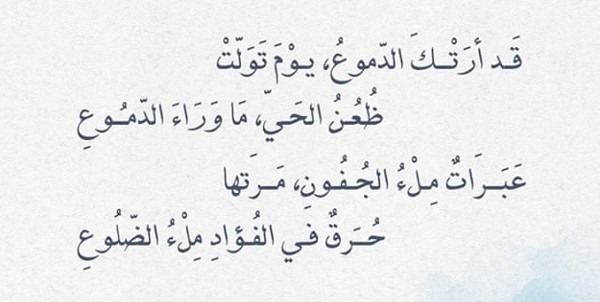 قَد أرَتْـكَ الدّموعُ، يـوْمَ تَوَلّتْ
ظُعُنُ الحَـيّ، مَا وَرَاءَ الدّمُـوعِ
عَبَـرَاتٌ مِـلْءُ الجُـفُـونِ، مَـرَتها
حُـرَقٌ فـي الفُـؤادِ مِلْءُ الضّلُوعِ